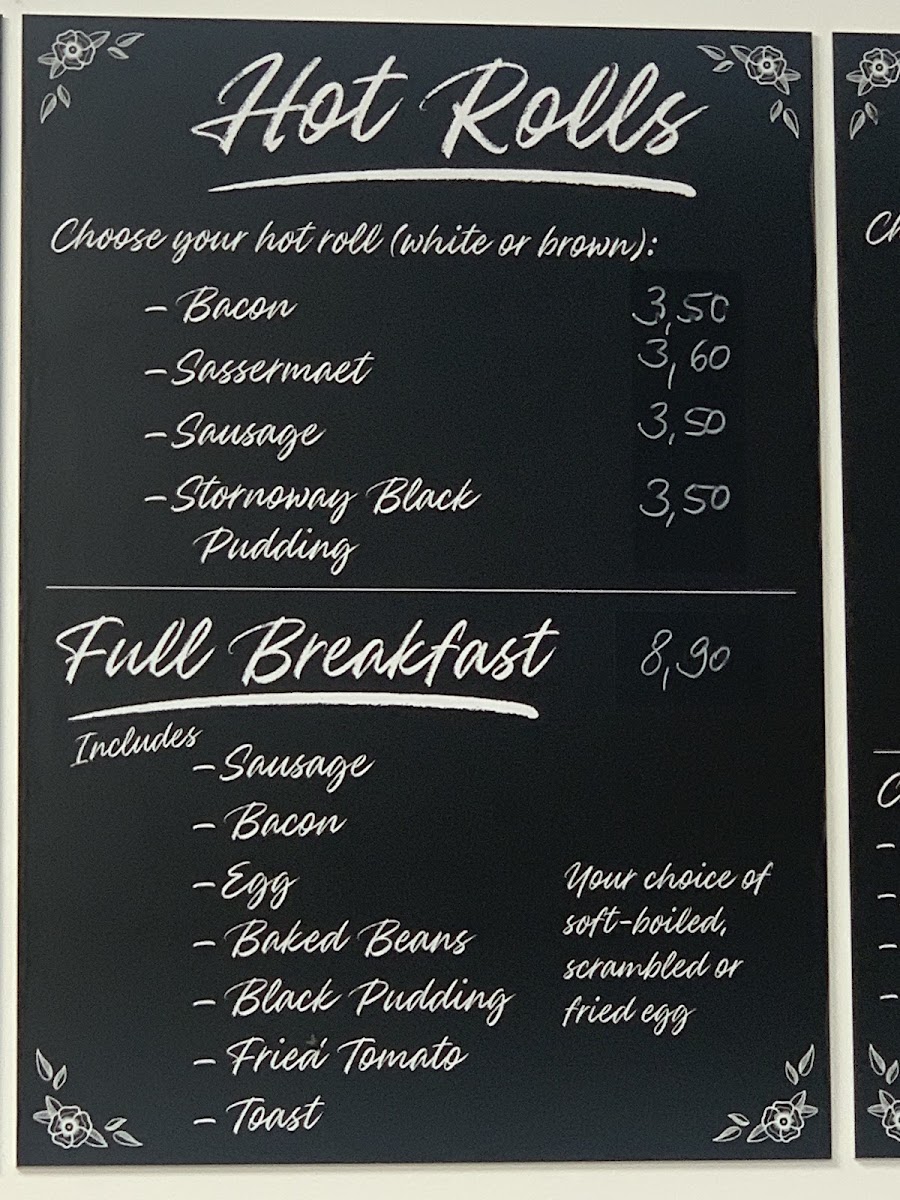 Hot Rolls
Choose your hot roll (white or brown):
- Bacon 3,50
- Sassermaet 3,60
- Sausage 3,50
- Stornoway Black 3,50
Pudding
Full Breakfast 8,90
Includes
- Sausage
- Bacon
- Egg
- Baked Beans
- Black Pudding
- Fried Tomato
- Toast
Your choice of
soft-boiled,
scrambled or
fried egg